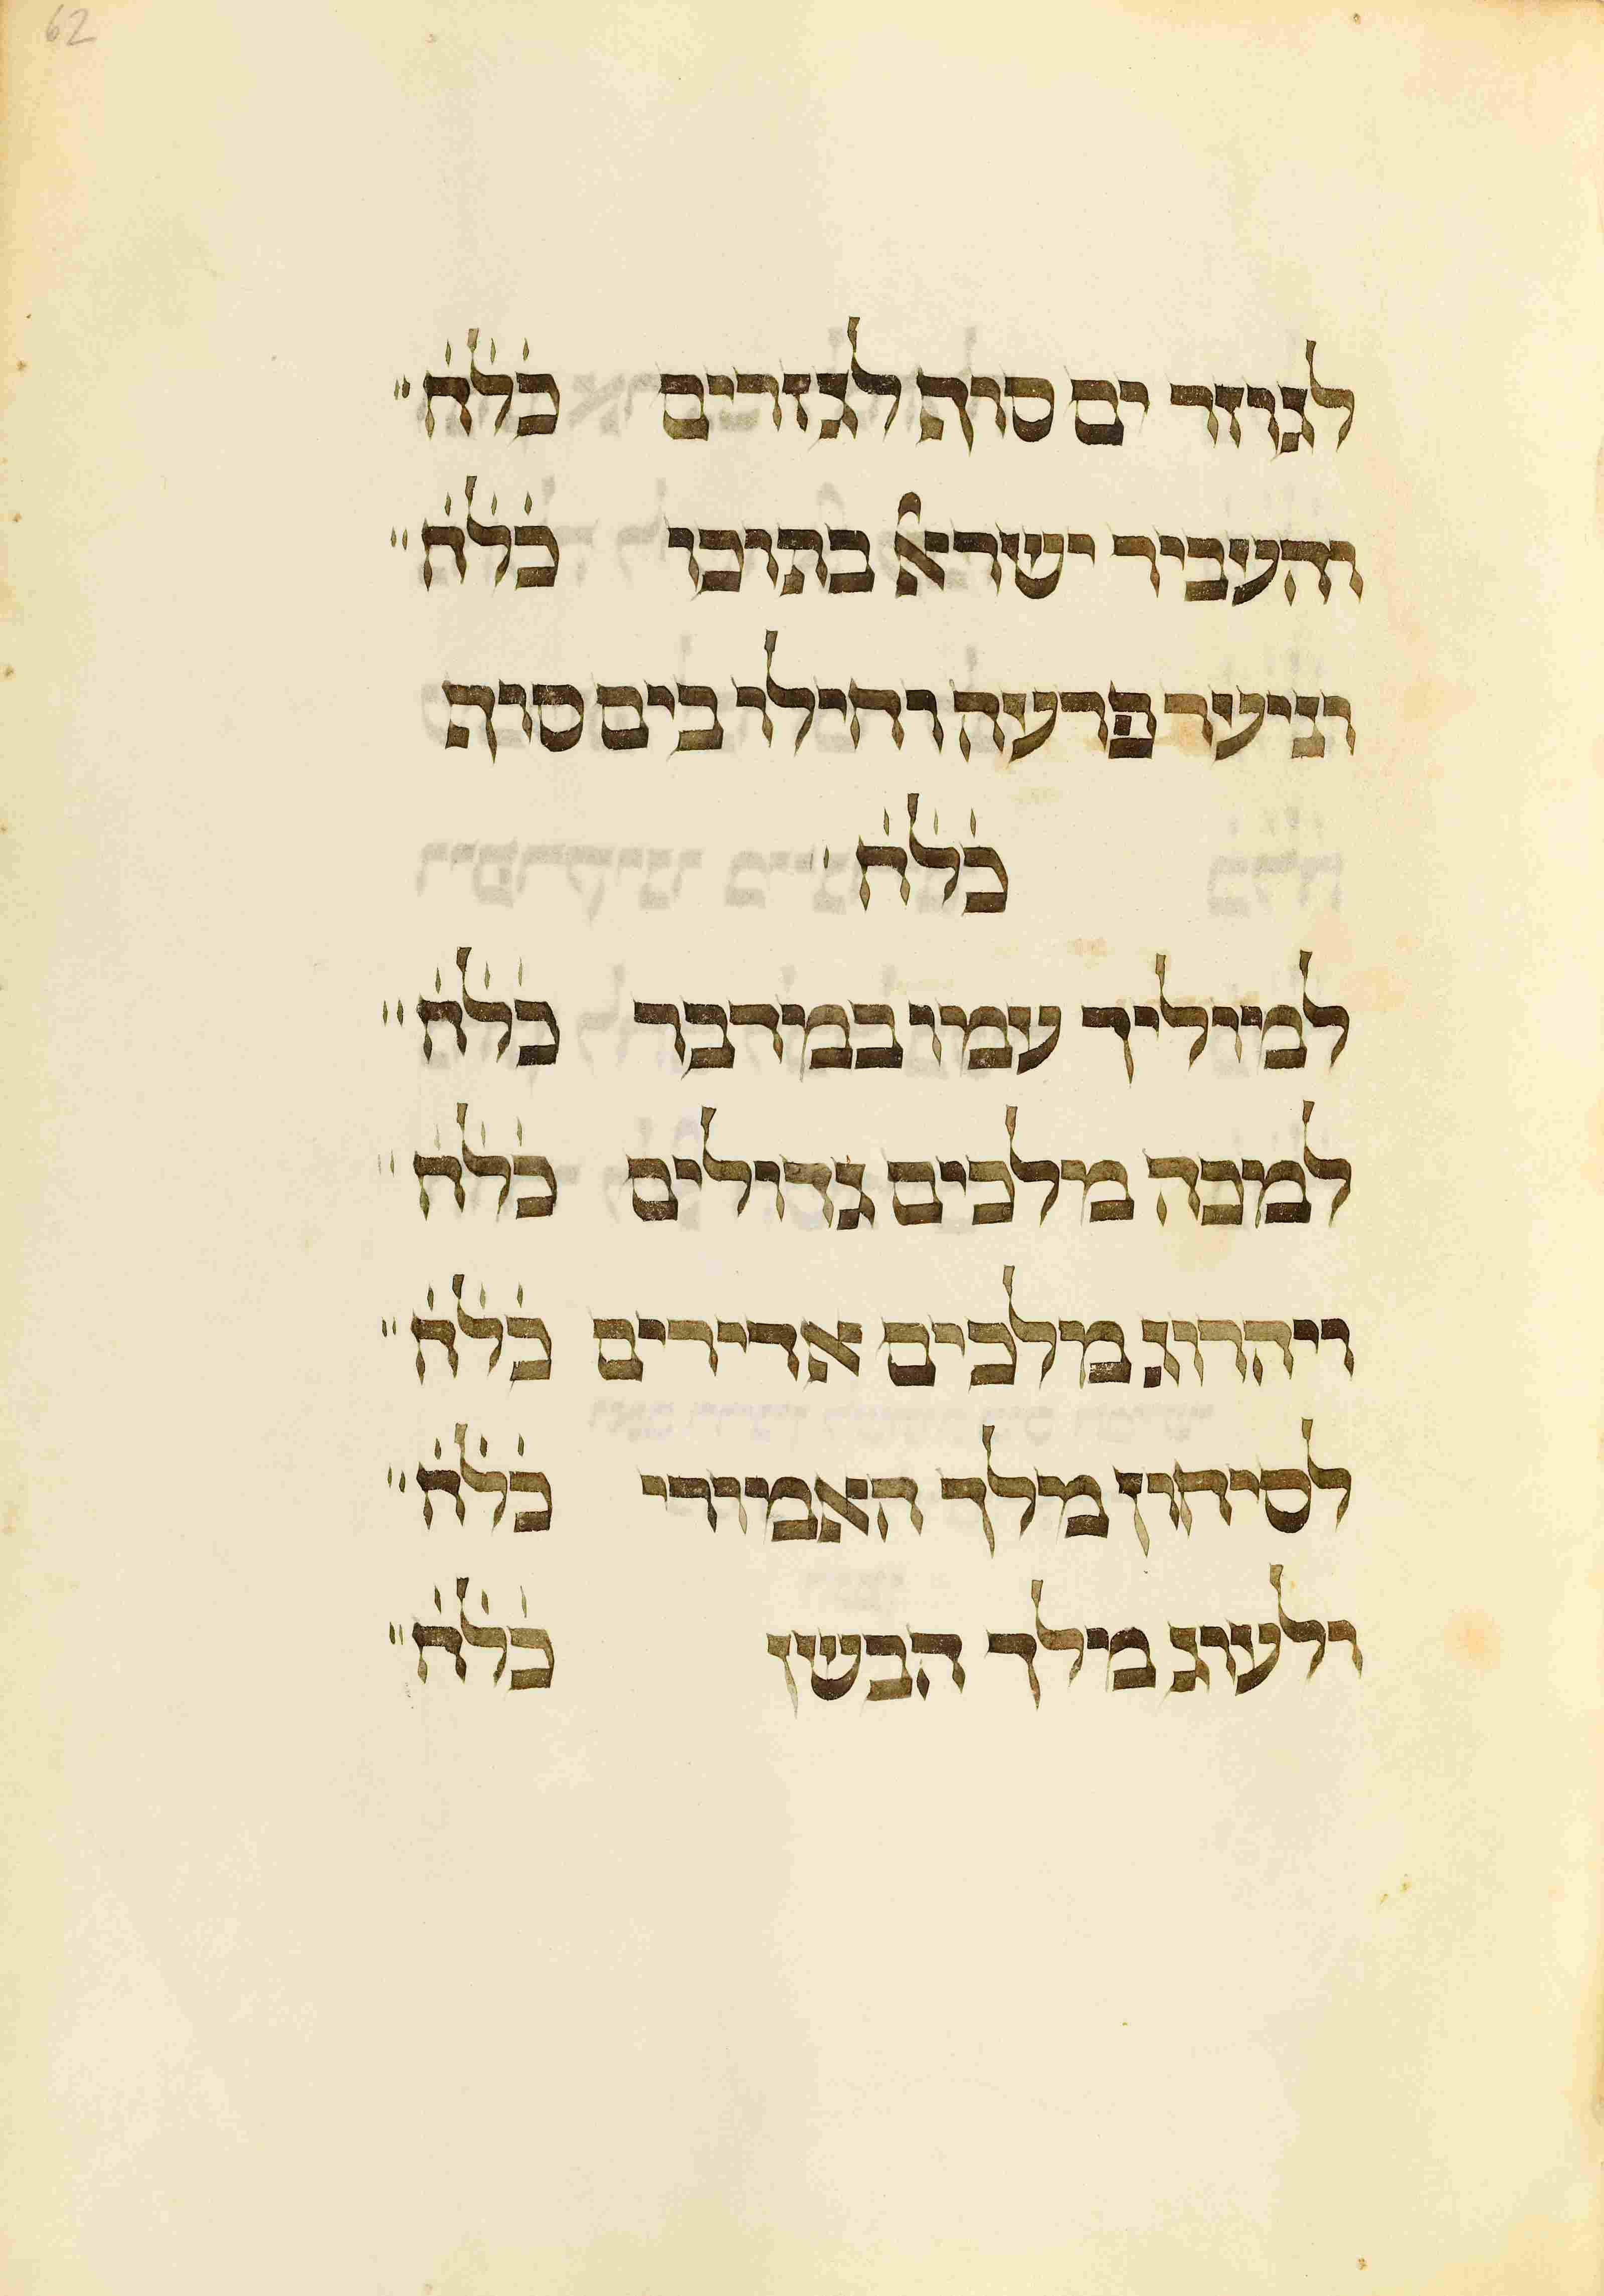 62
לגוזר ים סוף לגזרים כלח
והעביר ישרא בתוכו כלח
וניער פרעה וחילו בים סוף
כלח
למוליך עמו במדבר כלח
למכה מלכים גדולים כלח
ויהרוג מלכים אדירים כלח
לסיחון מלך האמורי כלח
ולעוג מלך הבשן כלח